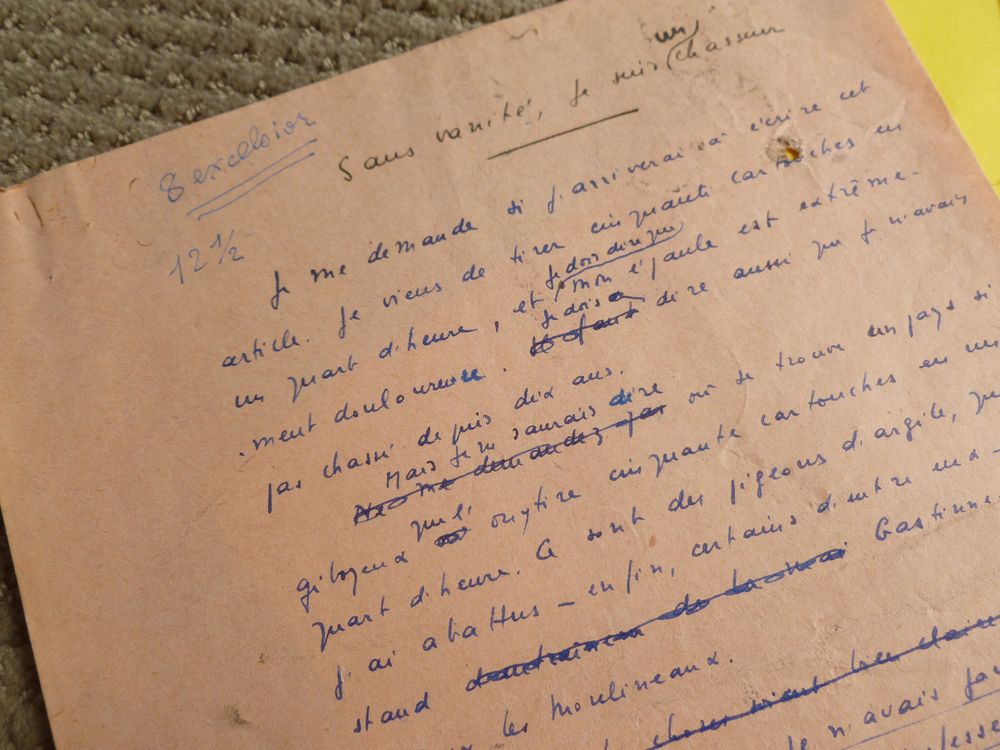 8 excelsior
12 1/2
Sans vanité, je suis un chasseur
Je me demande si j'arriverai à écrire cet
article. Je viens de tirer cinquante cartouches en
un quart d'heure, et je dois dire que mon épaule est extrême-
ment douloureuse. Je dois dire aussi que je n'avais
pas chassé depuis dix ans.
Mais je ne saurais dire
Ne me demandez pas où se trouve un pays si
giboyeux qu'on y tire cinquante cartouches en un
quart d'heure. Ce sont des pigeons d'argile, que
j'ai abattus – enfin, certains d'entre eux –
stand Gastinne
les Moulineaux.
choses
n'avais pas